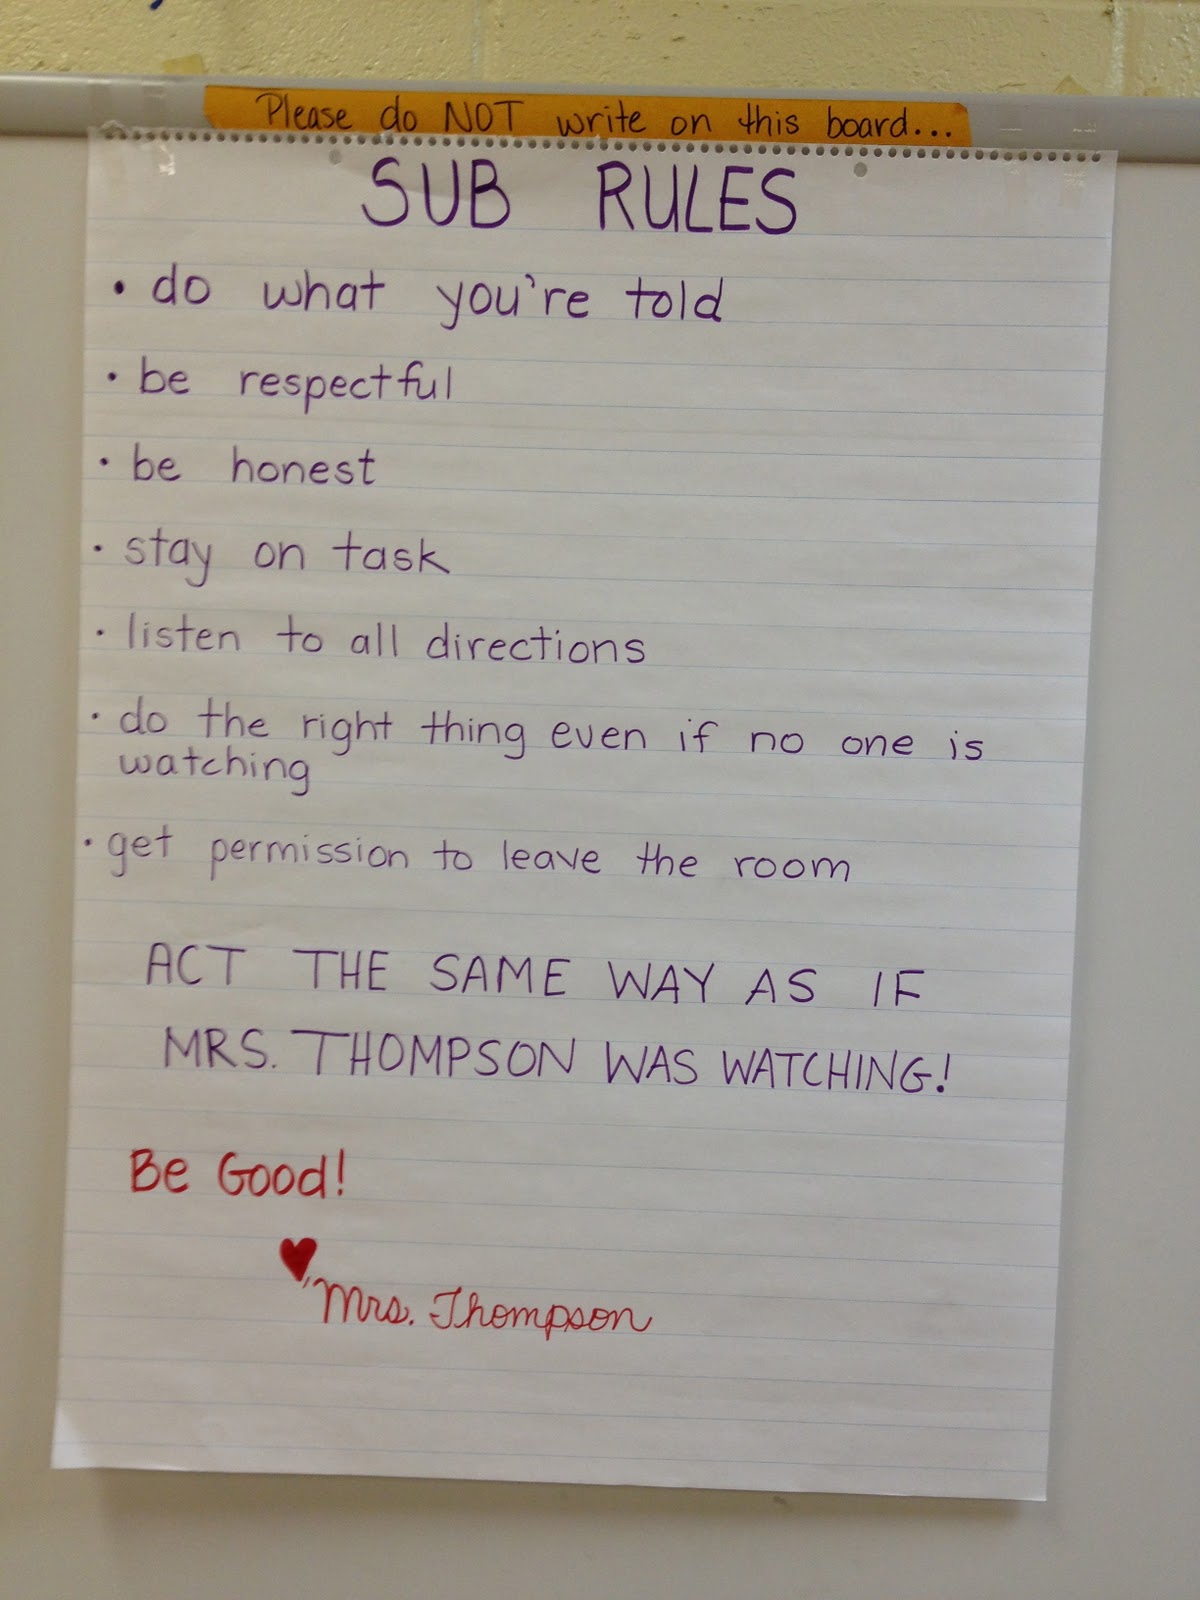 Please do NOT write on this board...
SUB RULES
• do what you're told
• be respectful
• be honest
• stay on task
• listen to all directions
• do the right thing even if no one is
watching
• get permission to leave the room
ACT THE SAME WAY AS IF
MRS. THOMPSON WAS WATCHING!
Be Good!
♥ Mrs. Thompson